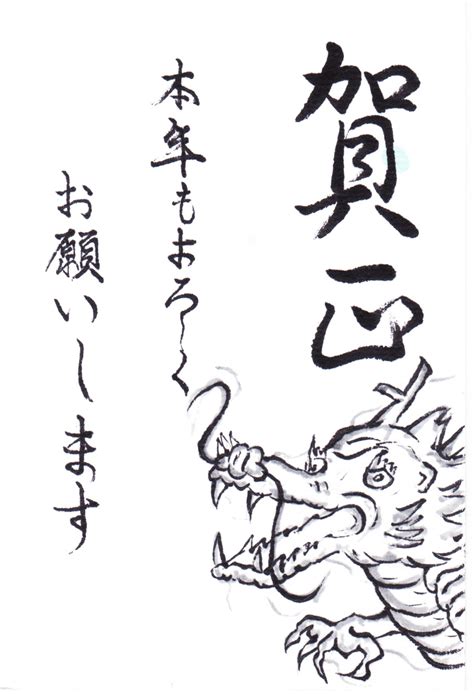 賀正
本年もよろしく
お願いします